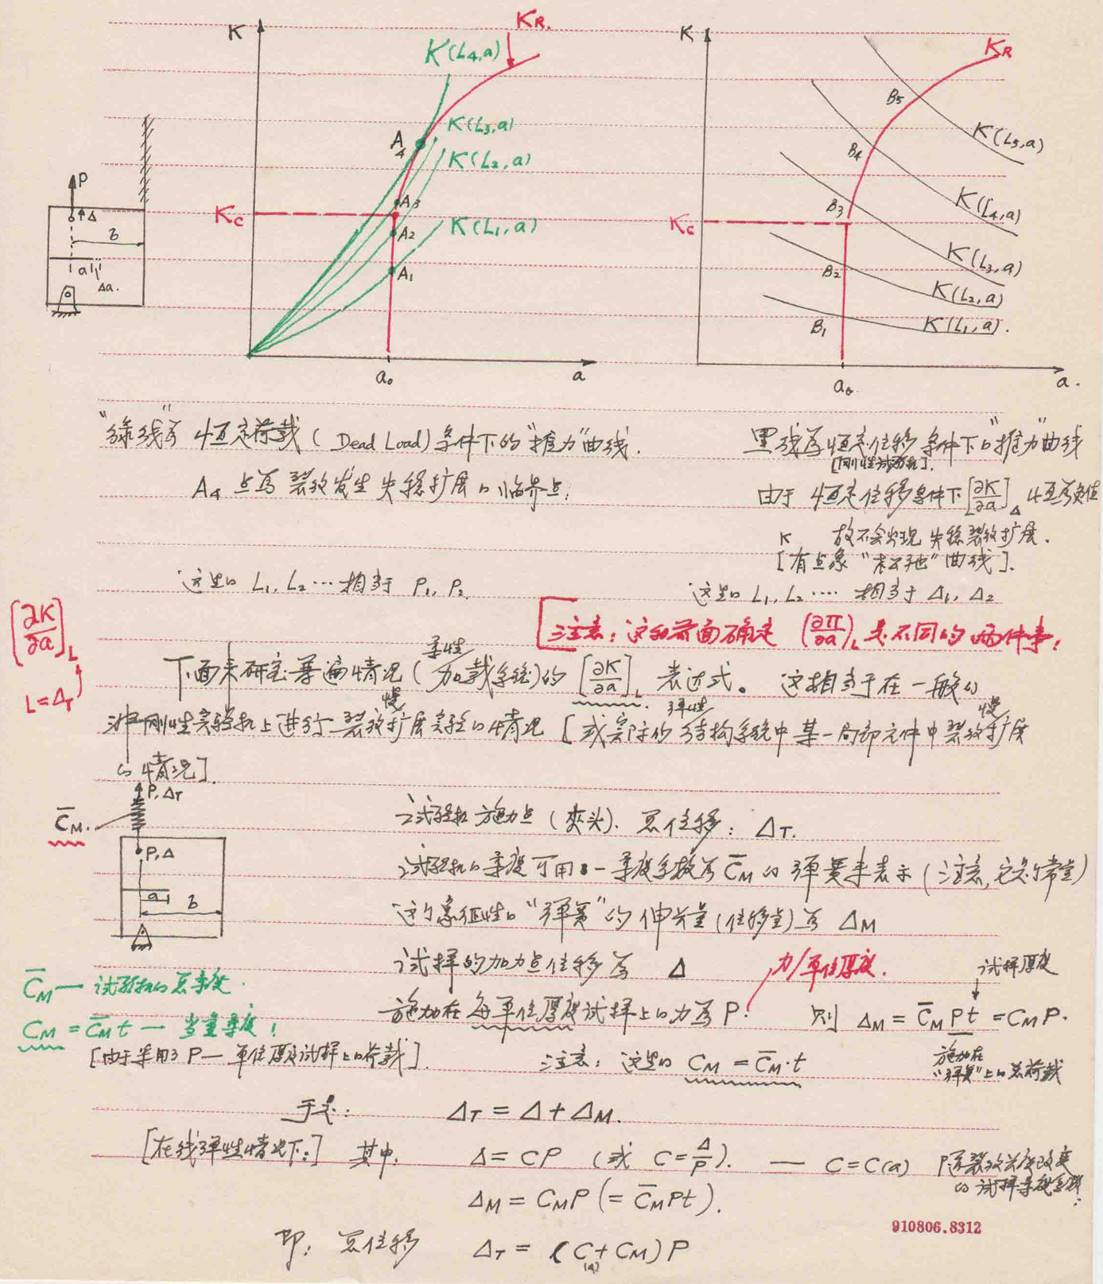 K
K_R.
K(L₄,a)
K(L₃,a)
K(L₂,a)
K(L₁,a)
A₄
A₃
A₂
A₁
K_C
a₀
a
P
Δ
b
a
Δa.
K
K_R
B₅
B₄
B₃
B₂
B₁
K(L₅,a)
K(L₄,a)
K(L₃,a)
K(L₂,a)
K(L₁,a).
K_C
a₀
a.
"绿线"为恒定荷载(Dead Load)条件下的"推力"曲线.
A₄点为裂纹发生失稳扩展的临界点;
这里的 L₁, L₂ … 相当于 P₁, P₂
黑线为恒定位移条件下的"推力"曲线
[刚性试验机].
由于恒定位移条件下[∂K/∂a]_Δ 恒为负值
K 故不会出现失稳裂纹扩展.
[有点象"松弛"曲线].
这里的 L₁, L₂ …. 相当于 Δ₁, Δ₂
[注意: 这和前面确定 (∂Π/∂a)_L 是不同的两件事,
[∂K/∂a]_L
L=Δ_T
下面来研究普遍情况(柔性加载系统)的[∂K/∂a]_L 表达式。这相当于在一般的
非刚性实验机上进行裂纹慢扩展实验的情况[或实际的弹性结构系统中某一局部元件中裂纹慢扩展
的情况].
P, Δ_T
C̄_M.
P, Δ
a
b
试验机施力点(夹头).总位移: Δ_T.
试验机的柔度可用一柔度系数为 C̄_M 的弹簧来表示(注意,它为常量)
这个象征性的"弹簧"的伸长量(位移量)为 Δ_M
试样的加力点位移为 Δ
力/单位厚度.
试样厚度
施加在每单位厚度试样上的力为P. 则 Δ_M = C̄_M Pt = C_M P.
施加在"弹簧"上的总荷载
C̄_M — 试验机的总柔度.
C_M = C̄_M t — 当量柔度!
[由于采用了P—单位厚度试样上的荷载].
注意: 这里的 C_M = C̄_M·t
于是: Δ_T = Δ + Δ_M.
[在线弹性情况下:] 其中, Δ = CP (或 C = Δ/P). — C = C(a) 随裂纹长度改变的试样柔度系数.
Δ_M = C_M P (= C̄_M Pt).
即: 总位移 Δ_T = (C(a) + C_M) P
910806.8312